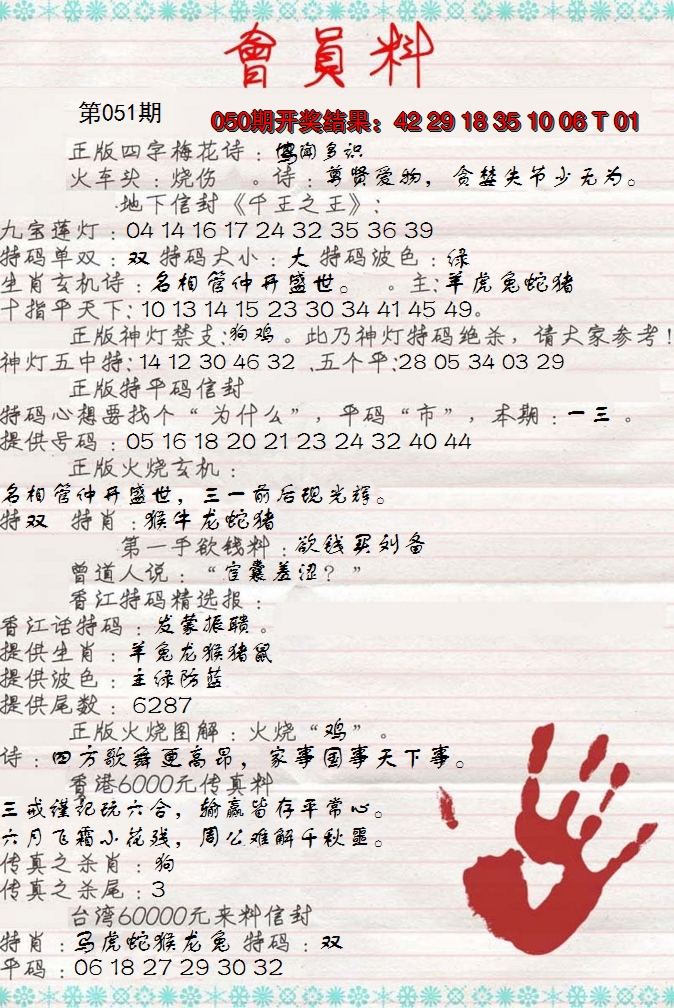 會員料
第051期
050期开奖结果：42 29 18 35 10 06 T 01
正版四字梅花诗：博闻多识
火车头：烧伤 。诗：尊贤爱物，贪婪失节少无为。
地下信封《千王之王》：
九宝莲灯：04 14 16 17 24 32 35 36 39
特码单双：双 特码大小：大 特码波色：绿
生肖玄机诗：名相管仲开盛世。 。主：羊虎兔蛇猪
十指平天下：10 13 14 15 23 30 34 41 45 49。
正版神灯禁支：狗鸡。此乃神灯特码绝杀，请大家参考！
神灯五中特：14 12 30 46 32 、五个平：28 05 34 03 29
正版特平码信封
特码心想要找个“为什么”，平码“市”，本期：一三 。
提供号码：05 16 18 20 21 23 24 32 40 44
正版火烧玄机：
名相管仲开盛世，三一前后现光辉。
特双 特肖：猴牛龙蛇猪
第一手欲钱料：欲钱买刘备
曾道人说：“宦囊羞涩？”
香江特码精选报：
香江话特码：发蒙振聩。
提供生肖：羊兔龙猴猪鼠
提供波色：主绿防蓝
提供尾数：6287
正版火烧图解：火烧“鸡”。
诗：四方歌舞更高昂，家事国事天下事。
香港6000元传真料
三戒谨记玩六合，输赢皆存平常心。
六月飞霜小花残，周公难解千秋噩。
传真之杀肖：狗
传真之杀尾：3
台湾60000元来料信封
特肖：马虎蛇猴龙兔 特码：双
平码：06 18 27 29 30 32